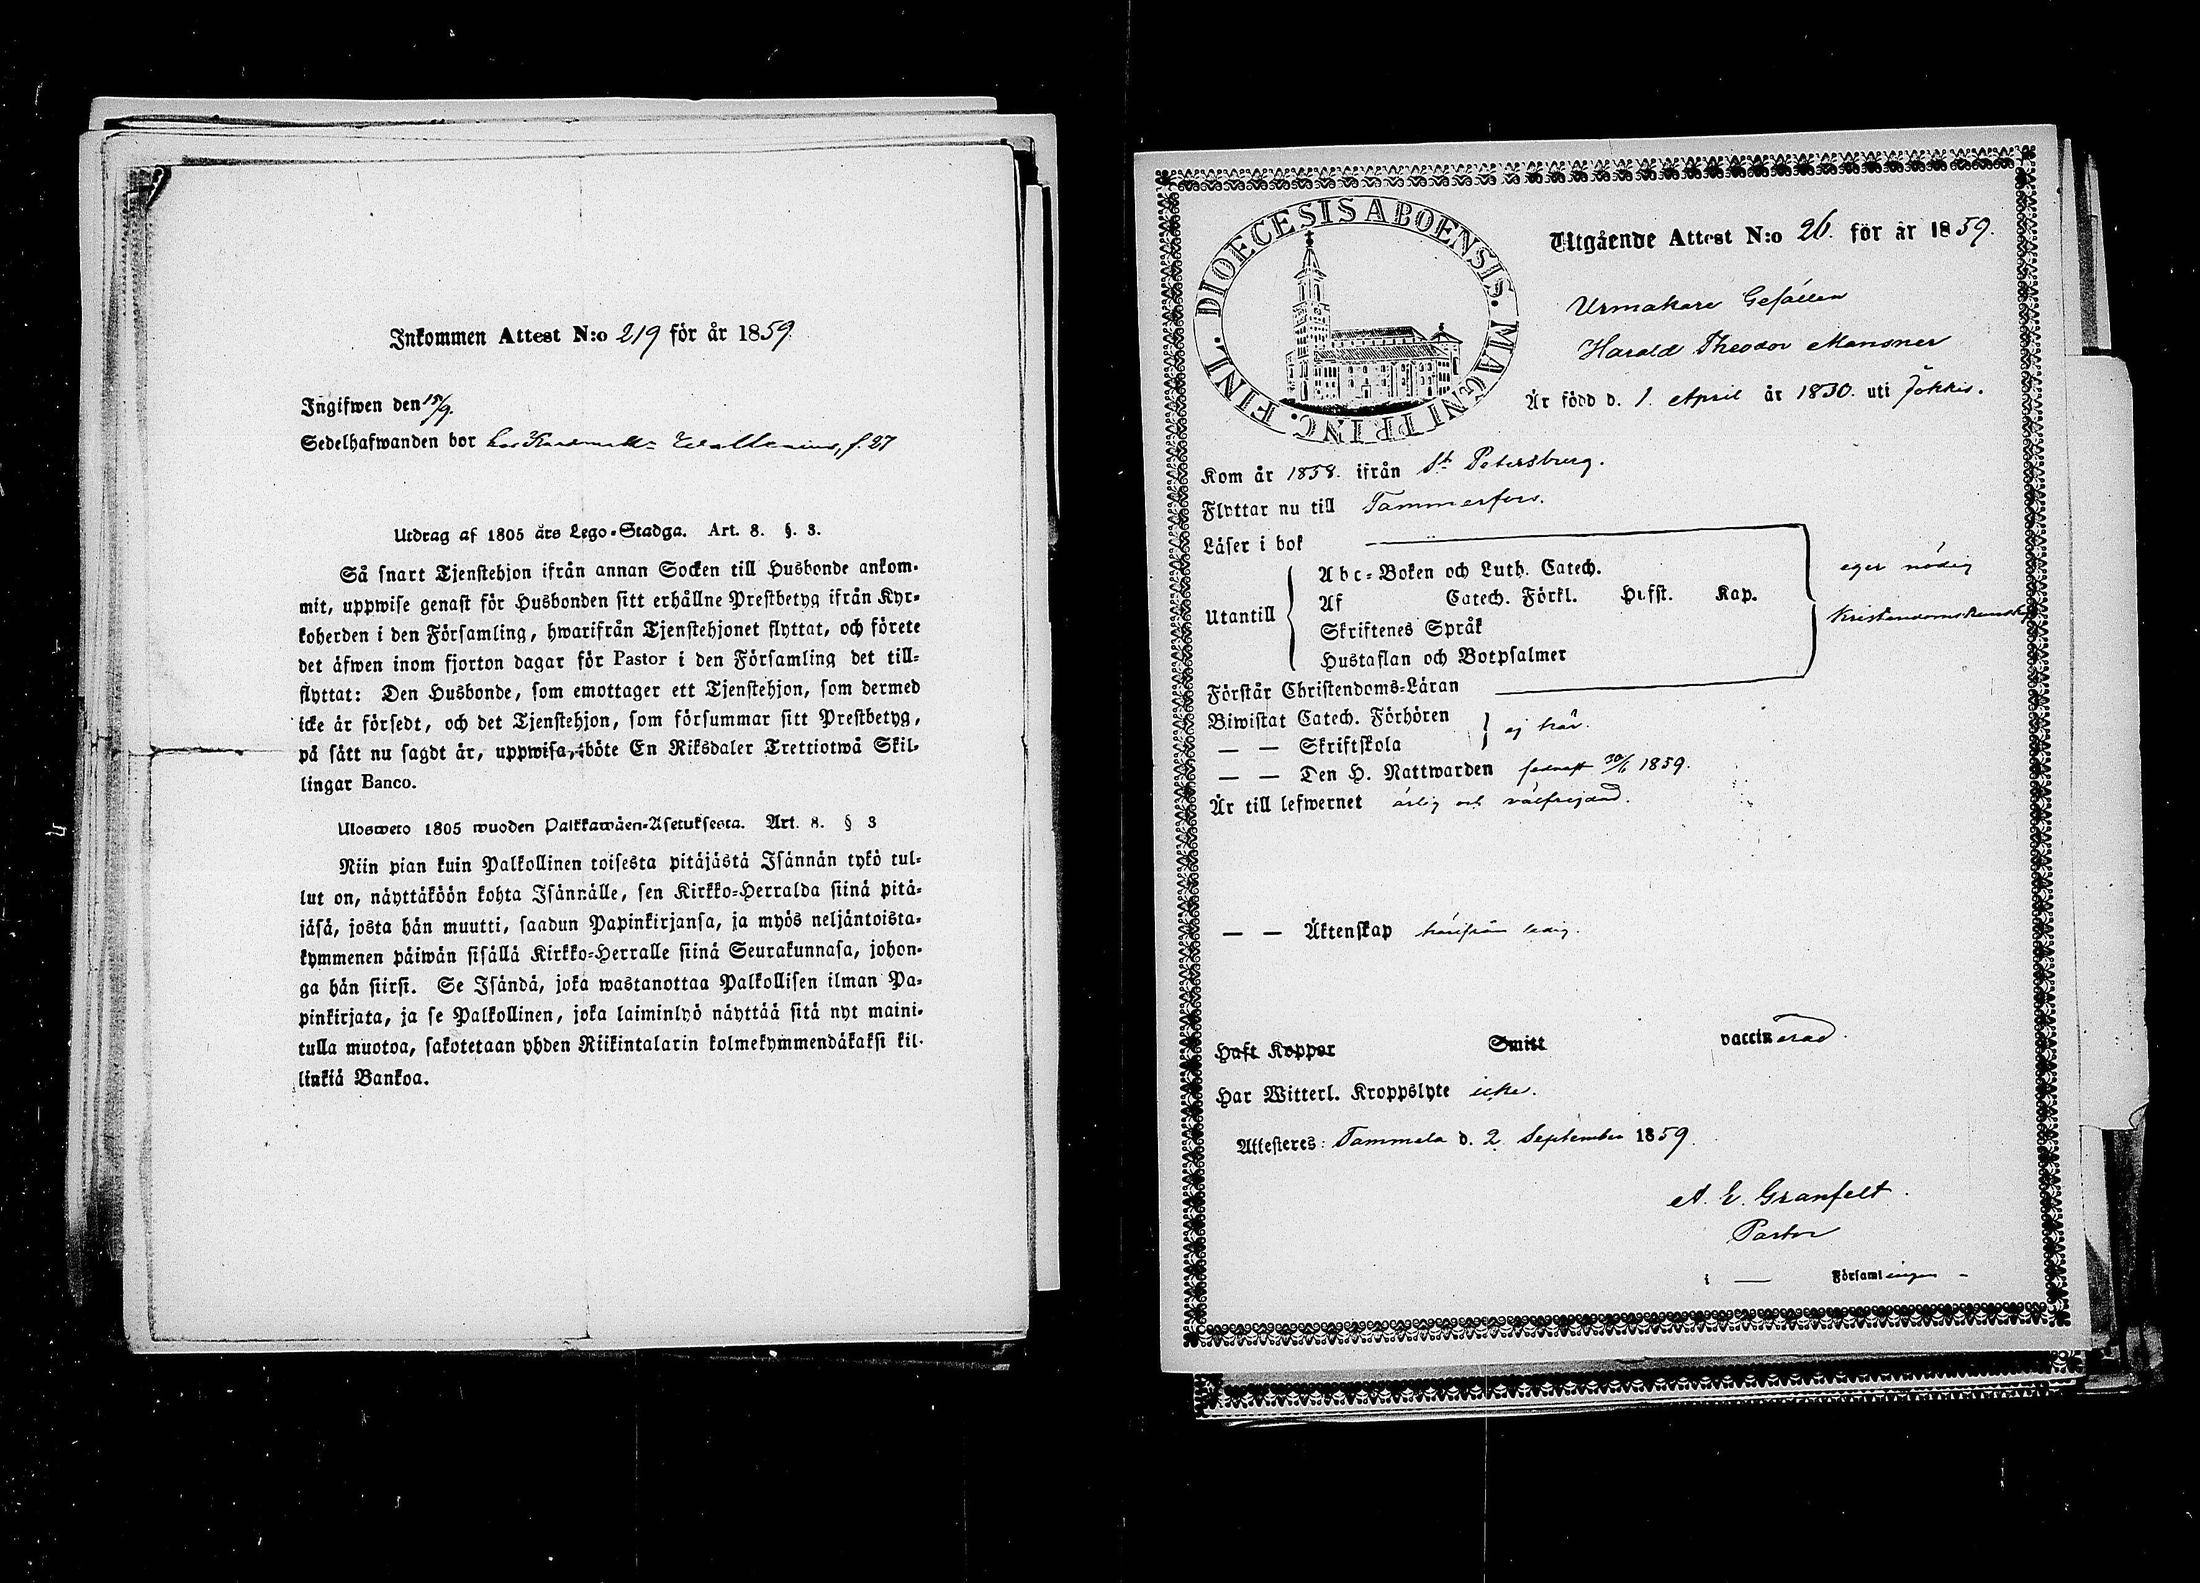 Inkommen Attest N:o 219 för år 1859.
Ingifwen den 15/9.
Sedelhafwanden bor hos Wallenius, f. 27
Utdrag af 1805 års Lego-Stadga. Art. 8. §. 3.
Så snart Tjenstehjon ifrån annan Socken till Husbonde ankom-
mit, uppwise genast för Husbonden sitt erhållne Prestbetyg ifrån Kyr-
koherden i den Församling, hwarifrån Tjenstehjonet flyttat, och förete
det äfwen inom fjorton dagar för Pastor i den Församling det till-
flyttat: Den Husbonde, som emottager ett Tjenstehjon, som dermed
icke är försedt, och det Tjenstehjon, som försummar sitt Prestbetyg,
på sätt nu sagdt är, uppwisa, böte En Riksdaler Trettiotwå Skil-
lingar Banco.
Uloswetο 1805 wuoden Palkkawäen-Asetuksesta. Art. 8. § 3
Niin pian kuin Palkollinen toisesta pitäjästä Isännän tykö tul-
lut on, näyttäköön kohta Isännälle, sen Kirkko-Herralda siinä pitä-
jäsä, josta hän muutti, saadun Papinkirjansa, ja myös neljäntoista-
kymmenen päiwän sisällä Kirkko-Herralle siinä Seurakunnasa, johon-
ga hän siirsi. Se Isändä, joka wastanottaa Palkollisen ilman Pa-
pinkirjata, ja se Palkollinen, joka laiminlyö näyttää sitä nyt maini-
tulla muotoa, sakotetaan yhden Riikintalarin kolmekymmendäkaksi kil-
linkiä Bankoa.
DIOECESIS ABOENSIS. MAGNI PRINC. FINL.
Utgående Attest N:o 26. för år 1859.
Urmakare Gesällen
Harald Theodor Mansner
Är född d. 1. April år 1830. uti Jokkis.
Kom år 1858. ifrån St Petersburg.
Flyttar nu till Tammerfors.
Läser i bok
Utantill
Abc-Boken och Luth. Catech.
Af Catech. Förkl. Hufst. Kap.
Skriftenes Språk
Hustaflan och Botpsalmer
eger nödig
Kristendomskunskap
Förstår Christendoms-Läran
Biwistat Catech. Förhören
— — Skriftskola
ej här.
— — Den H. Nattwarden sednast 30/6 1859.
Är till lefwernet ärlig och välfrejdad.
— — Äktenskap härifrån ledig.
Haft Koppor Smitt vaccinerad.
Har Witterl. Kroppslyte icke.
Attesteres: Tammela d. 2 September 1859.
A. E. Granfelt.
Pastor
i — Församlingen –